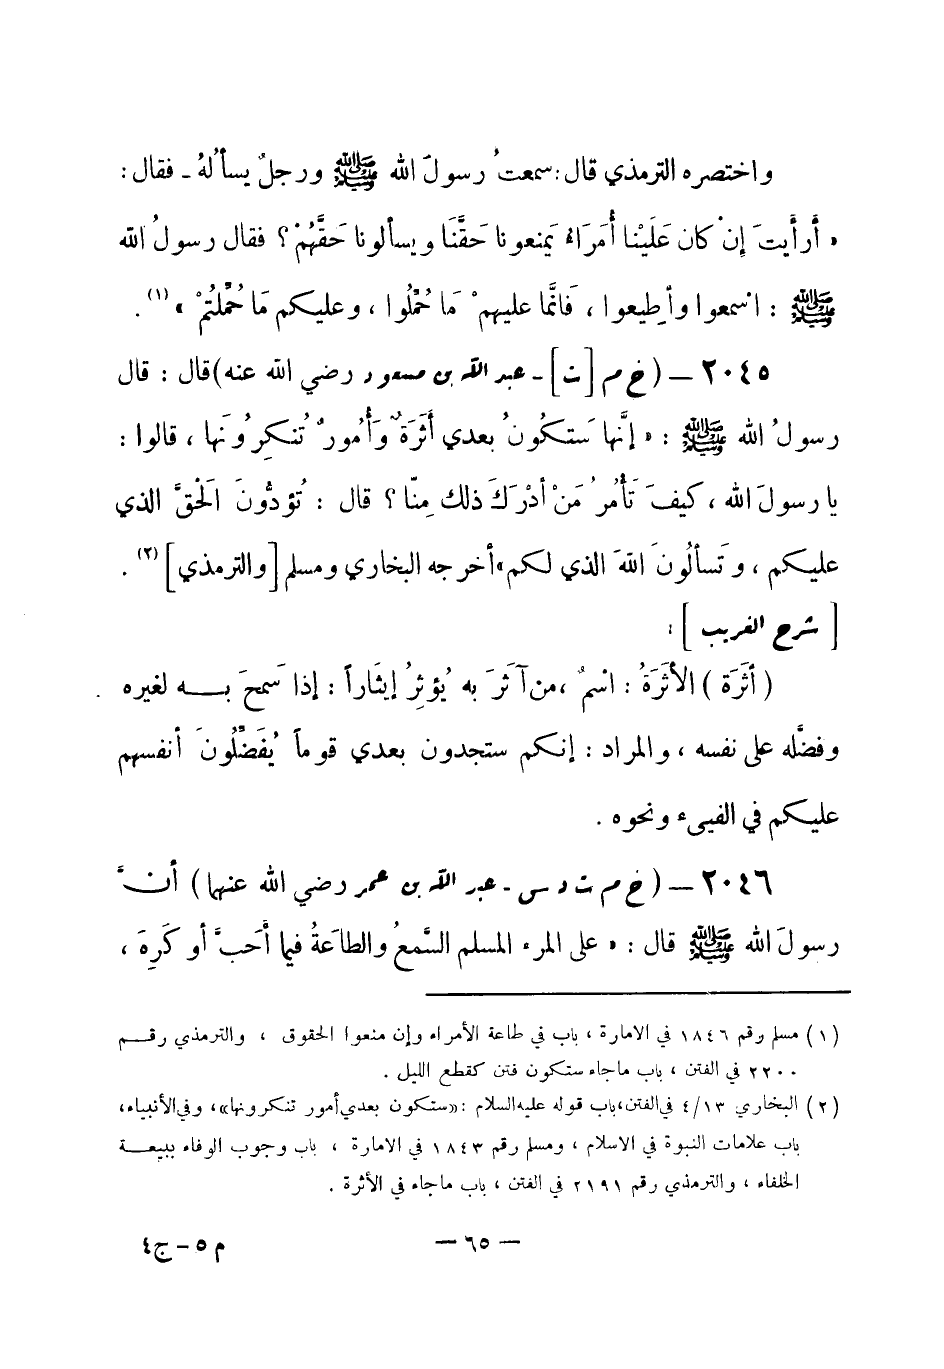 واختصره الترمذي قال: سمعتُ رسولَ الله ﷺ ورجلٌ يسأَلُهُ - فقال:
« أَرأَيتَ إِنْ كان عَلَيْنا أُمَرَاءُ يَمنعونا حَقَّنَا ويسألونا حَقَّهُمْ؟ فقال رسولُ الله
ﷺ : اسمعوا وأَطيعوا ، فَانَّما عليهمْ مَا حُمِّلُوا ، وعليكم مَا حُمِّلتُمْ » (١) .
٢٠٤٥ – (خ م [ت] - عبد الله بن مسعود رضي الله عنه) قال : قال
رسولُ الله ﷺ : « إِنَّها سَتكُونُ بعدي أَثَرَةٌ وَأُمورٌ تُنكِرُونَها ، قالوا :
يا رسولَ الله ، كيفَ تَأْمُرُ مَنْ أدْرَكَ ذلك مِنَّا ؟ قال : تُؤدُّونَ الَحْقَّ الذي
عليكم ، وتَسألُونَ اللهَ الذي لكم » أخرجه البخاري ومسلم [والترمذي] (٢) .
[ شرح الغريب ] :
( أَثَرَة ) الأَثَرَةُ : اسْمٌ ، من آثَرَ به يُؤثِرُ إِيثَاراً : إذا سَمحَ بـــه لغيره
وفضَّله على نفسه ، والمراد : إنكم ستجدون بعدي قوماً يُفَضِّلُونَ أنفسهم
عليكم في الفيىء ونحوه .
٢٠٤٦ – (خ م ت د س - عبد الله بن عمر رضي الله عنهما) أنَّ
رسولَ الله ﷺ قال : « على المرء المسلم السَّمعُ والطاَعةُ فيما أَحَبَّ أو كَرِهَ ،
(١) مسلم رقم ١٨٤٦ في الامارة ، باب في طاعة الأمراء وإن منعوا الحقوق ، والترمذي رقـــم
٢٢٠٠ في الفتن ، باب ماجاء ستكون فتن كقطع الليل .
(٢) البخاري ٤/١٣ في الفتن، باب قوله عليه السلام : «ستكون بعدي أمور تنكرونها»، وفي الأنبياء،
باب علامات النبوة في الاسلام ، ومسلم رقم ١٨٤٣ في الامارة ، باب وجوب الوفاء ببيعـــة
الخلفاء ، والترمذي رقم ٢١٩١ في الفتن ، باب ماجاء في الأثرة .
– ٦٥ –
م ٥ – ج ٤